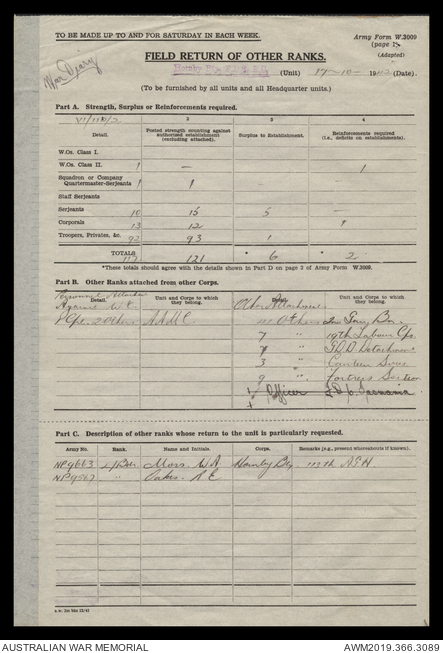 TO BE MADE UP TO AND FOR SATURDAY IN EACH WEEK.
Army Form W.3009
(page 1).
(Adapted)
War Diary
FIELD RETURN OF OTHER RANKS.
(Unit) 17-10-1942 (Date).
(To be furnished by all units and all Headquarter units.)
Part A. Strength, Surplus or Reinforcements required.
2 3 4
Detail. Posted strength counting against authorized establishment (excluding attached). Surplus to Establishment. Reinforcements required (i.e., deficits on establishments).
W.Os. Class I.
W.Os. Class II. 1 — 1
Squadron or Company
Quartermaster-Serjeants 1 1
Staff Serjeants
Serjeants 10 15 5 —
Corporals 13 12 1
Troopers, Privates, &c. 92 93 1
TOTALS 117 121 * 6 * 2
*These totals should agree with the details shown in Part D on page 2 of Army Form W.3009.
Part B. Other Ranks attached from other Corps.
Personnel Attached
Against W.E.
Detail. Unit and Corps to which they belong. Detail. Unit and Corps to which they belong.
Other Attachments
1 Cpl. 2 Others A.A.M.C.
Others
7 " 19th Labour Cps.
" Detachment
3 " Canteen Servs
9 " Fortress Section
Officer
Part C. Description of other ranks whose return to the unit is particularly requested.
Army No. Rank. Name and Initials. Corps. Remarks (e.g., present whereabouts if known).
NP9663 L/Bdr Moss. W.A. Hornby Bty 111th A.G.H
NP9567 " Oakes. A E
AUSTRALIAN WAR MEMORIAL
AWM2019.366.3089